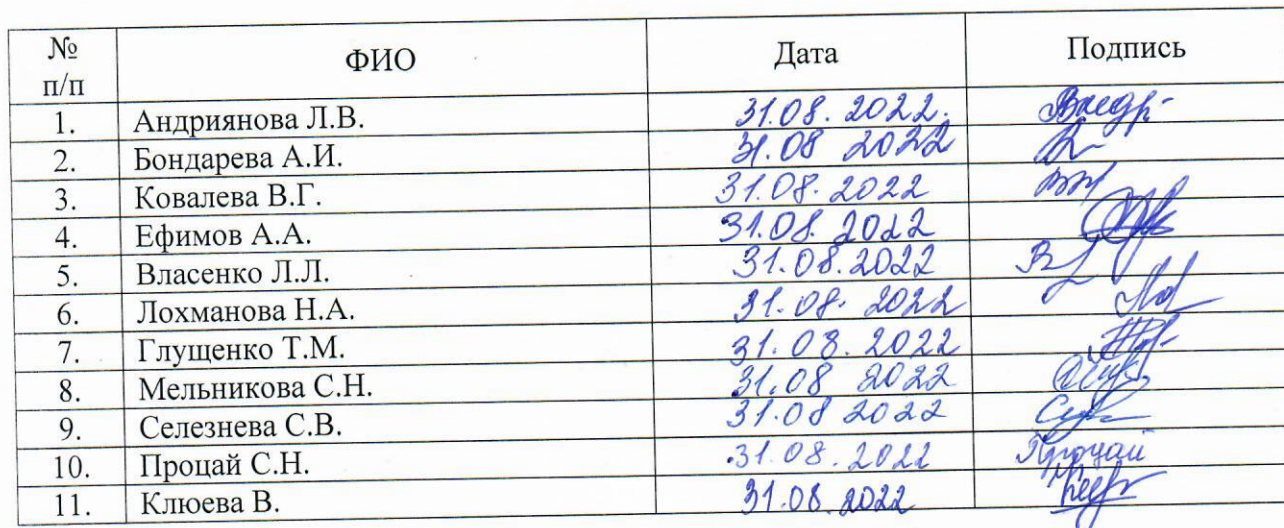 № п/п ФИО Дата Подпись
1. Андриянова Л.В. 31.08.2022.
2. Бондарева А.И. 31.08 2022
3. Ковалева В.Г. 31.08.2022
4. Ефимов А.А. 31.08.2022
5. Власенко Л.Л. 31.08.2022
6. Лохманова Н.А. 31.08.2022
7. Глущенко Т.М. 31.08.2022
8. Мельникова С.Н. 31.08 2022
9. Селезнева С.В. 31.08 2022
10. Процай С.Н. 31.08.2022 Процай
11. Клюева В. 31.08.2022